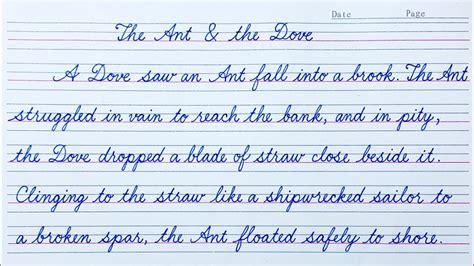 Date Page
The Ant & the Dove
A Dove saw an Ant fall into a brook. The Ant
struggled in vain to reach the bank, and in pity,
the Dove dropped a blade of straw close beside it.
Clinging to the straw like a shipwrecked sailor to
a broken spar, the Ant floated safely to shore.